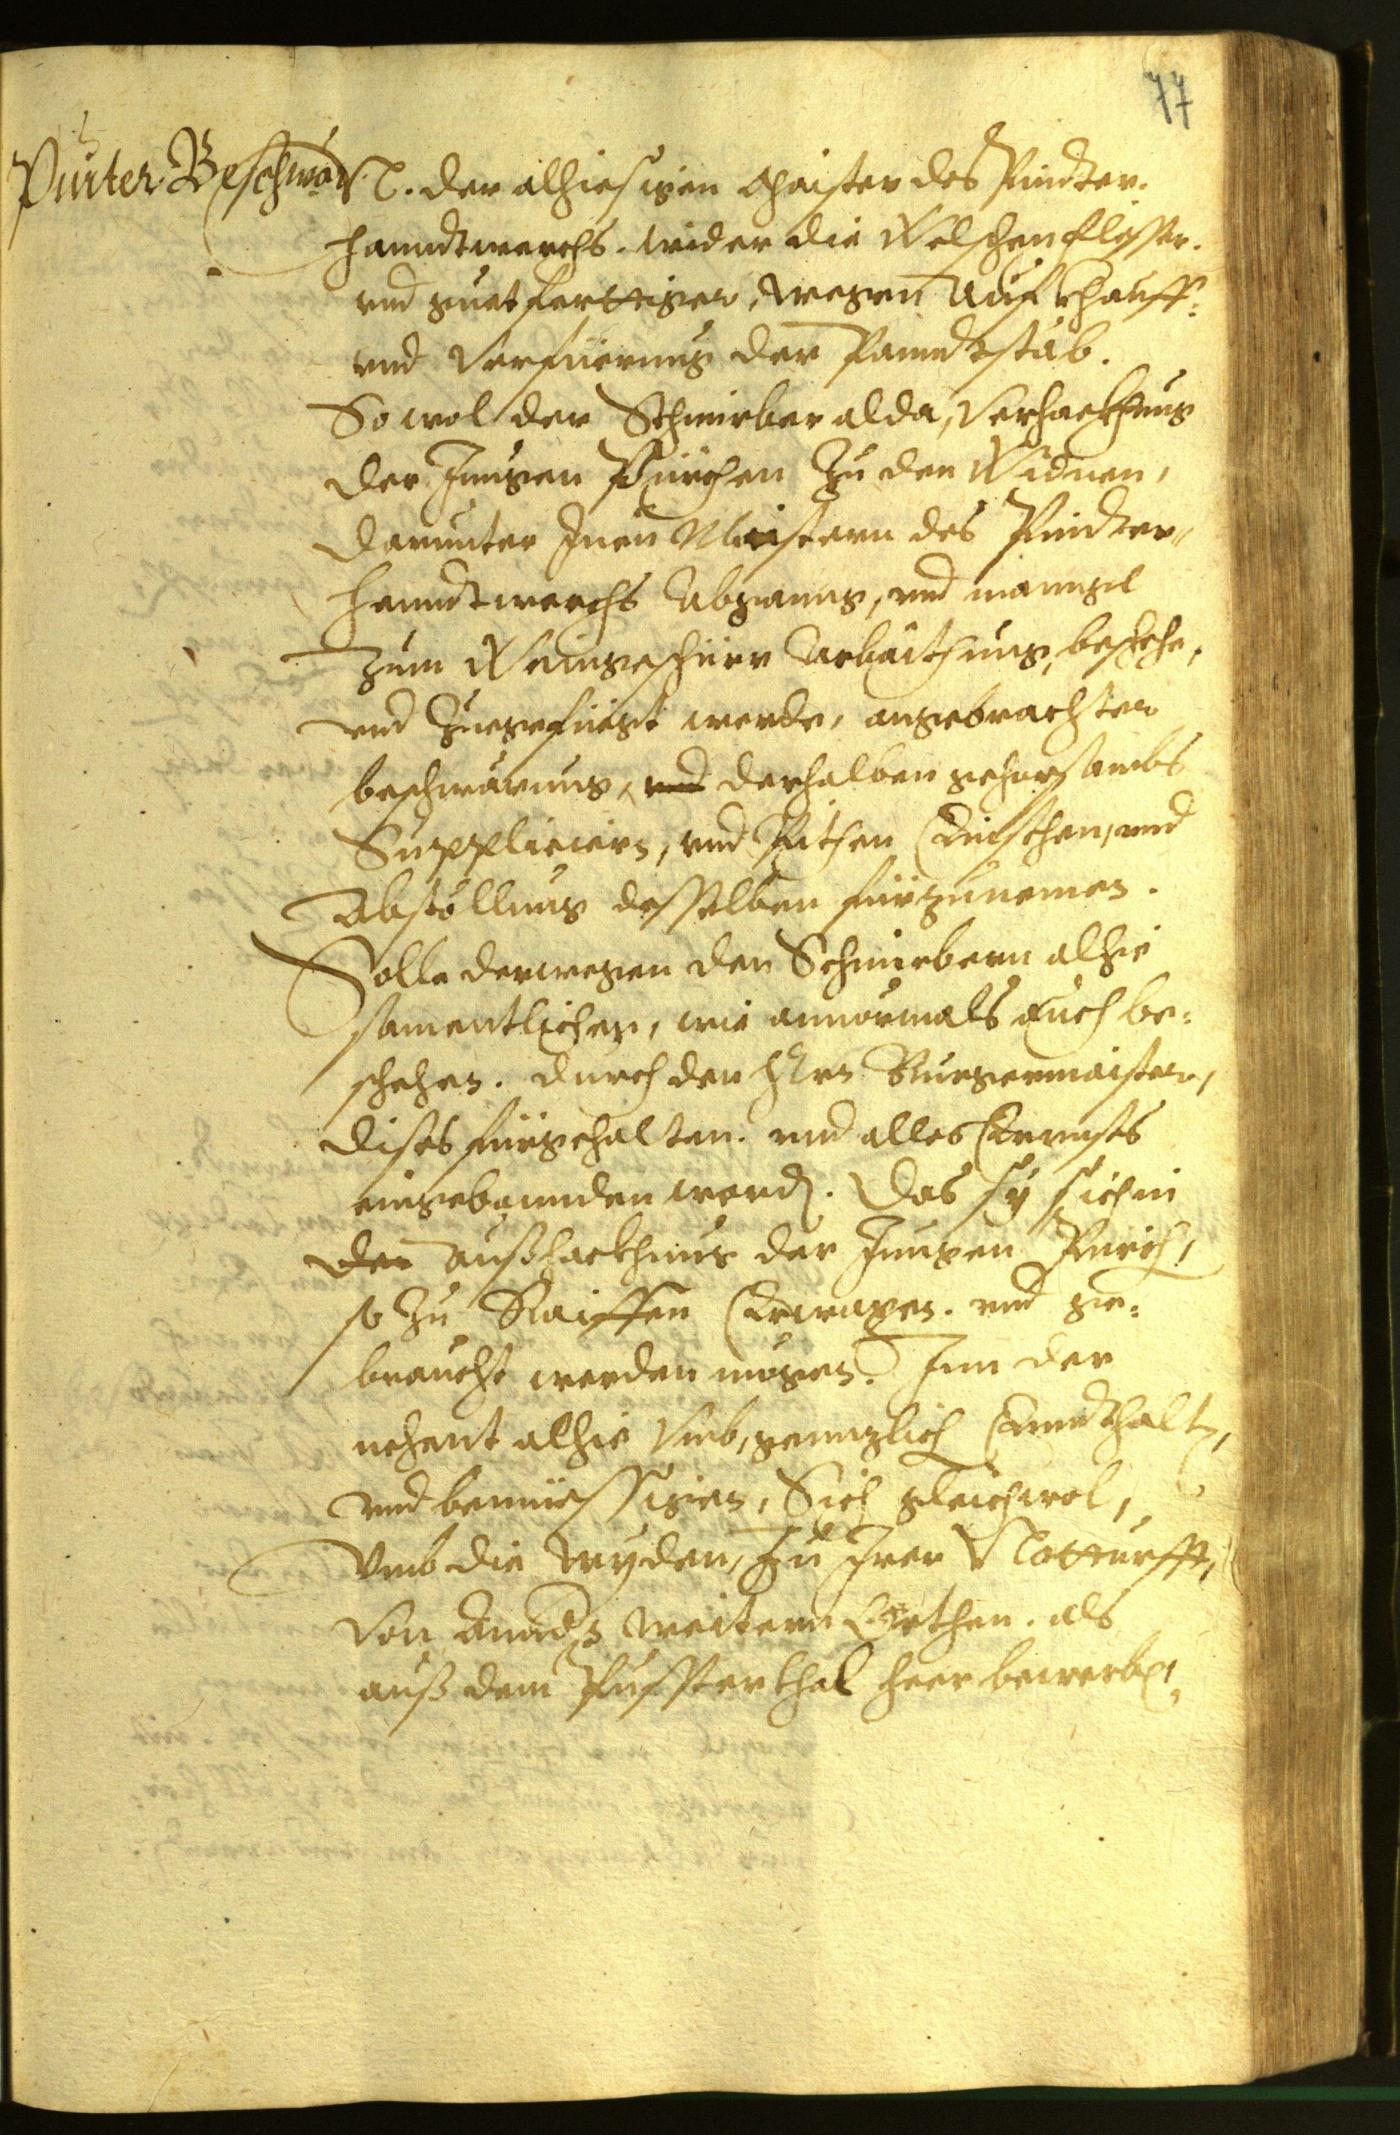 77
Pinter Beschwär
N. der alhiesigen Maister des Pindter-
hanndtwerchs. wider die Welschen flesser.
vnd guetferttiger, wegen Aufkhauff-
vnd Verfüerung der Panndtstäb.
So wol der Schmirber alda, Verhackhung
der Jungen Pürchen zu den Widnen,
darunter Inen Maistern des Pindter-
hanndtwerchs Abganng, vnd manngl
zum Weingeschürr Arbaithung, beschehe,
vnd zuegefüegt werde, angebrachter
beschwärung, derhalben gehorsambs
Suppliciern, vnd Pithen Einsehen, vnd
Abstöllung desselben fürzunemen.
Solle derwegen den Schmirbern alhie
samentlichen, wie annormals auch be-
schehen. durch den Hern Burgermaister,
dises fürgehalten. vnd alles Ernnsts
eingebunden werden. Das sy sich in
der außhackhung der Jungen Pirch,
so zu Raiffen Erwaxen. vnd ge-
braucht werden mögen. Inn der
nehent alhie Vmb, genntzlich Enndthalten,
vnd bemüessigen, Sich gleichwol,
Vmb die wyden, zu Irer Notturfft,
Von Anndern weitern Orthen. als
auß dem Pussterthal heer bewerben,